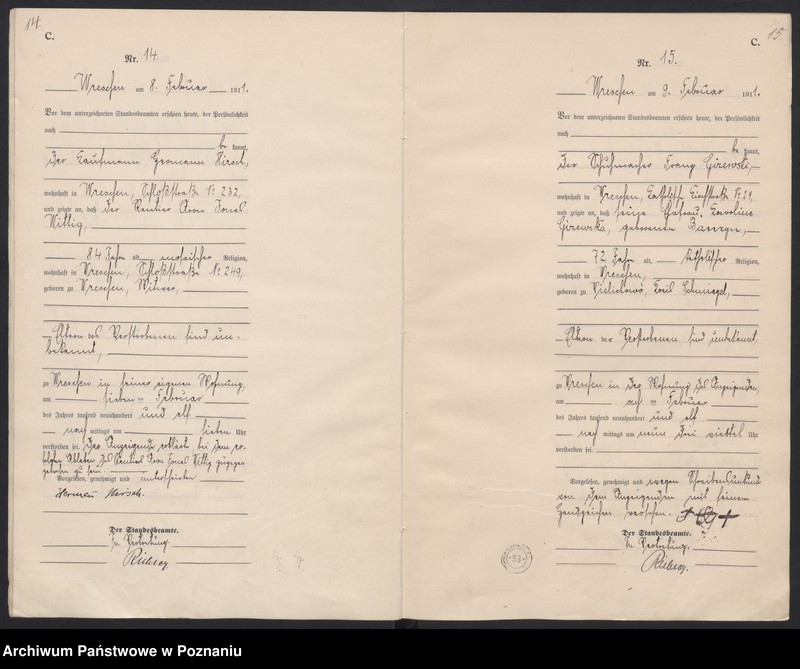 14.
C.
Nr. 14.
Wreschen am 8. Februar 1911.
Vor dem unterzeichneten Standesbeamten erschien heute, der Persönlichkeit
nach
be kannt,
der Kaufmann Hermann Hirsch,
wohnhaft in Wreschen, Schloßstraße No 232,
und zeigte an, daß der Rentier Aron Jonas
Wittig,
84 Jahre alt, mosaischer Religion,
wohnhaft in Wreschen, Schloßstraße No 249,
geboren zu Wreschen, Witwer,
Eltern des Verstorbenen sind un-
bekannt,
zu Wreschen in seiner eigenen Wohnung,
am sieben ten Februar
des Jahres tausend neunhundert und elf
nach mittags um sieben Uhr
verstorben sei. Der Anzeigende erklärt bei dem er-
folgten Ableben des Rentiers Aron Jonas Wittig zugegen
gewesen zu sein.
Vorgelesen, genehmigt und unterschrieben
Herman Hirsch.
Der Standesbeamte.
In Vertretung.
15.
C.
Nr. 15.
Wreschen am 9. Februar 1911.
Vor dem unterzeichneten Standesbeamten erschien heute, der Persönlichkeit
nach
be kannt,
der Schuhmacher Franz Girewski,
wohnhaft in Wreschen, No 21,
und zeigte an, daß seine Ehefrau, Karoline
Girewska, geborenen
72 Jahre alt, katholischer Religion,
wohnhaft in Wreschen,
geboren zu Wielichowo, Kreis Schmiegel,
Eltern der Verstorbenen sind unbekannt,
zu Wreschen in der Wohnung des Anzeigenden,
am ach ten Februar
des Jahres tausend neunhundert und elf
nach mittags um neun drei viertel Uhr
verstorben sei.
Vorgelesen, genehmigt und wegen Schreibensunkunde
von dem Anzeigenden mit seinem
Handzeichen versehen. +++
Der Standesbeamte.
In Vertretung.
53
Archiwum Państwowe w Poznaniu